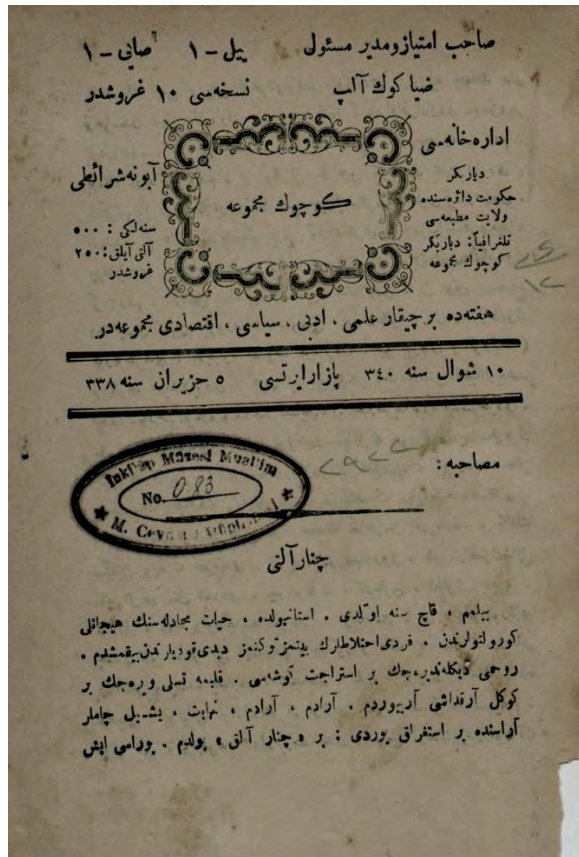 صاحب امتياز و مدير مسئول
ييل - ١
صايى - ١
ضيا كوك آلپ
نسخه‌سى ١٠ غروشدر
اداره خانه‌سى
دياربكر
حكومت دائره‌سنده
ولايت مطبعه‌سى
تلغرافياً: دياربكر
كوچوك مجموعه
كوچوك مجموعه
آبونه شرائطى
سنه‌لكى : ٥٠٠
آلتى آيلق : ٢٥٠
غروشدر
هفته‌ده بر چيقار علمى ، ادبى ، سياسى ، اقتصادى مجموعه‌در
١٠ شوال سنه ٣٤٠ پازارايرتسى ٥ حزيران سنه ٣٣٨
مصاحبه :
İnkılâp Müzesi Muallim
No. 0.83
M. Cevdet
چنار آلتى
بيلمم ، قاچ سنه اولدى . استانبولده ، حيات مجادله‌سنك هيجانلى
كورولتولرندن ، فردى احتلاطارك بيتمز توكنمز ديدى قوديلرندن بيقمشدم .
روحمى ديكلنديره‌جك بر استراحت كوشه‌سى . قلبمه تسلى ويره‌جك بر
كوكل آرقداشى آرييوردم . آرادم ، آرادم ، نهايت ، يشيل چاملر
آراسنده بر استغراق يوردى : بر « چنار آلتى » بولدم . بوراسى ايش